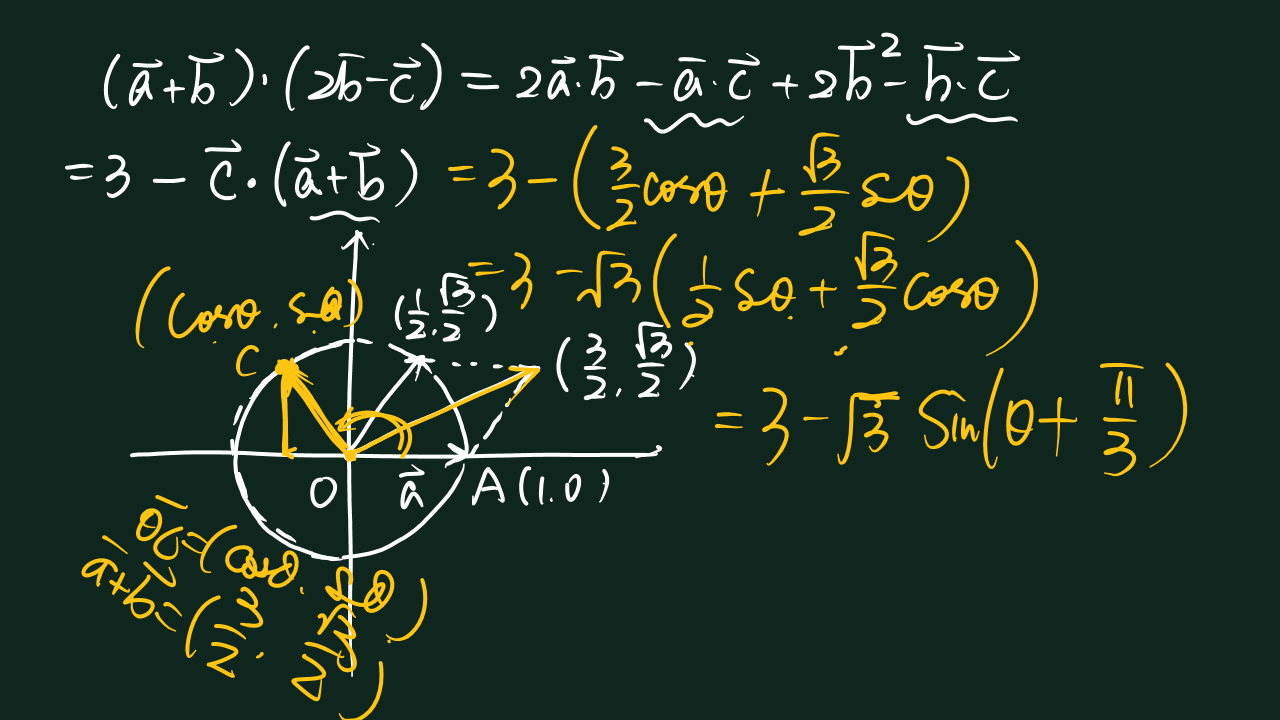 (a⃗+b⃗)·(2b⃗-c⃗) = 2a⃗·b⃗ - a⃗·c⃗ + 2b⃗² - b⃗·c⃗
= 3 - c⃗·(a⃗+b⃗) = 3 - (3/2 cosθ + √3/2 sθ)
= 3 - √3(1/2 sθ + √3/2 cosθ)
= 3 - √3 Sin(θ + π/3)
(cosθ, sθ)
(1/2, √3/2)
C
(3/2, √3/2)
O a⃗ A(1,0)
OC⃗=(cosθ, sθ)
a⃗+b⃗=(3/2, √3/2)